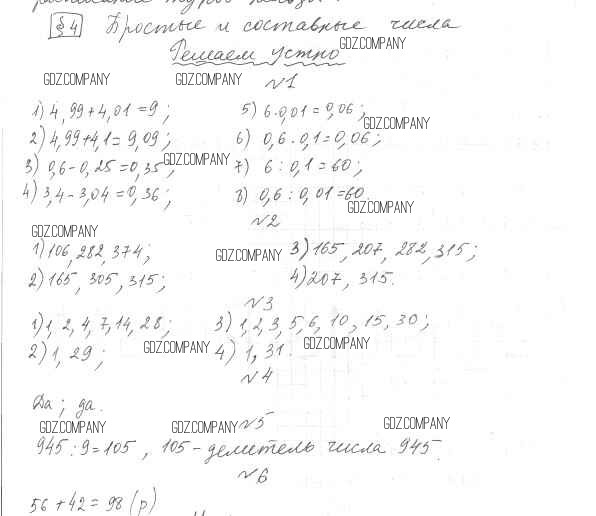 §4 Простые и составные числа
Решаем устно
GDZ.COMPANY
GDZ.COMPANY GDZ.COMPANY
№1
1) 4,99+4,01=9;
2) 4,99+4,1=9,09;
3) 0,6-0,25=0,35;
4) 3,4-3,04=0,36;
GDZ.COMPANY
5) 6·0,01=0,06;
GDZ.COMPANY
6) 0,6·0,1=0,06;
7) 6:0,1=60;
8) 0,6:0,01=60.
GDZ.COMPANY
№2
GDZ.COMPANY
1) 106, 282, 374;
2) 165, 305, 315;
GDZ.COMPANY
3) 165, 207, 282, 315;
4) 207, 315.
№3
1) 1, 2, 4, 7, 14, 28;
2) 1, 29;
GDZ.COMPANY
3) 1, 2, 3, 5, 6, 10, 15, 30;
4) 1, 31.
GDZ.COMPANY
№4
Да; да.
GDZ.COMPANY GDZ.COMPANY GDZ.COMPANY
№5
945:9=105, 105-делитель числа 945.
№6
56+42=98 (р)